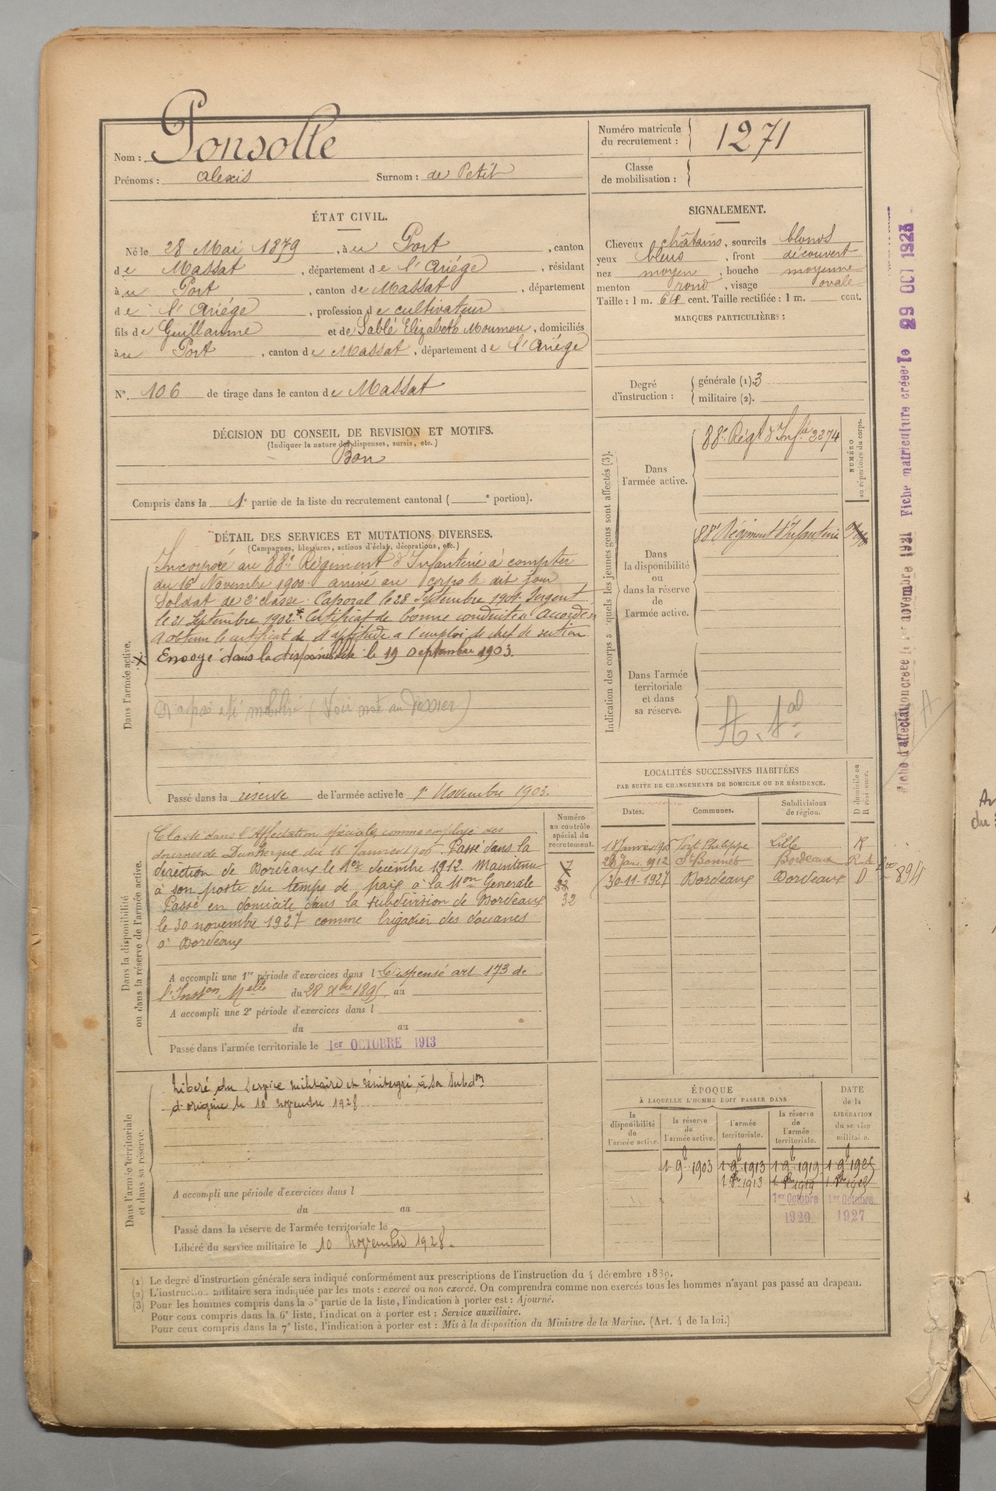 Nom : Ponsolle
Prénoms : Alexis Surnom : de Petit
Numéro matricule du recrutement : 1271
Classe de mobilisation :
ÉTAT CIVIL.
Né le 28 Mai 1879, à u Port, canton
de Massat, département de l'Ariége, résidant
à u Port, canton de Massat, département
de l'Ariége, profession de cultivateur
fils de Guillaume et de Sablé Elizabeth Moumou, domiciliés
à u Port, canton de Massat, département de l'Ariége
N° 106 de tirage dans le canton de Massat
SIGNALEMENT.
Cheveux châtains, sourcils blonds
yeux bleus, front découvert
nez moyen, bouche moyenne
menton rond, visage ovale
Taille : 1 m. 64 cent. Taille rectifiée : 1 m. cent.
MARQUES PARTICULIÈRES :
Degré d'instruction : générale (1). 3
militaire (2).
DÉCISION DU CONSEIL DE REVISION ET MOTIFS.
(Indiquer la nature des dispenses, sursis, etc.)
Bon
Compris dans la 1e partie de la liste du recrutement cantonal ( e portion).
DÉTAIL DES SERVICES ET MUTATIONS DIVERSES.
(Campagnes, blessures, actions d'éclat, décorations, etc.)
Dans l'armée active.
Incorporé au 88e Régiment d'Infanterie à compter
du 16 Novembre 1900 arrivé au corps le dit jour
Soldat de 2e classe. Caporal le 28 Septembre 1901 Sergent
le 21 Septembre 1902 * Certificat de bonne conduite " Accordé "
A obtenu le certificat de d'aptitude à l'emploi de chef de section
X Envoyé dans la disponibilité le 19 Septembre 1903.
N'a pas été mobilisé (Voir note au dossier)
Passé dans la reserve de l'armée active le 1er Novembre 1903.
Indication des corps auxquels les jeunes gens sont affectés (3).
NUMÉRO au répertoire du corps.
Dans l'armée active. 88e Régt d'Infie 3374
Dans la disponibilité ou dans la réserve de l'armée active. 88e Régiment d'Infanterie
Dans l'armée territoriale et dans sa réserve.
Numéro au contrôle spécial du recrutement.
Dans la disponibilité ou dans la réserve de l'armée active.
Classé dans l'Affectation spéciale comme employé des
douanes de Dunkerque du 16 Janvier 1906. Passé dans la
direction de Bordeaux le 1er décembre 1912. Maintenu
à son poste du temps de paix à la Mon Générale
Passé en domicile dans la subdivision de Bordeaux
le 30 novembre 1927 comme brigadier des douanes
à Bordeaux
32
A accompli une 1re période d'exercices dans l Dispensé art 173 de
l'Inston Melle du 28 Xbre 1895 au
A accompli une 2e période d'exercices dans l
du au
Passé dans l'armée territoriale le 1er OCTOBRE 1913
LOCALITÉS SUCCESSIVES HABITÉES
PAR SUITE DE CHANGEMENTS DE DOMICILE OU DE RÉSIDENCE.
Dates. Communes. Subdivisions de région. D domicile ou R résidence.
Fort Philippe Lille R
Jan. 1912 Bordeaux
30-11-1927 Bordeaux Bordeaux D 894
Dans l'armée territoriale et dans sa réserve.
Libéré du service militaire et réintégré à sa subdon
d'origine le 10 novembre 1928
A accompli une période d'exercices dans l
du au
Passé dans la réserve de l'armée territoriale le
Libéré du service militaire le 10 Novembre 1928.
ÉPOQUE
À LAQUELLE L'HOMME DOIT PASSER DANS
DATE de la LIBÉRATION du service militaire.
la disponibilité de l'armée active. la réserve de l'armée active. l'armée territoriale. la réserve de l'armée territoriale.
1 9b 1903 1 9b 1913 1 9b 1919 1 9b 1925
1er Octobre 1920
1er Octobre 1927
Fiche d'affectation créée le 1er novembre 1921 Fiche matriculture créée le 29 OCT 1923
(1) Le degré d'instruction générale sera indiqué conformément aux prescriptions de l'instruction du 4 décembre 1889.
(2) L'instruction militaire sera indiquée par les mots : exercé ou non exercé. On comprendra comme non exercés tous les hommes n'ayant pas passé au drapeau.
(3) Pour les hommes compris dans la 5e partie de la liste, l'indication à porter est : Ajourné.
Pour ceux compris dans la 6e liste, l'indication à porter est : Service auxiliaire.
Pour ceux compris dans la 7e liste, l'indication à porter est : Mis à la disposition du Ministre de la Marine. (Art. 4 de la loi.)